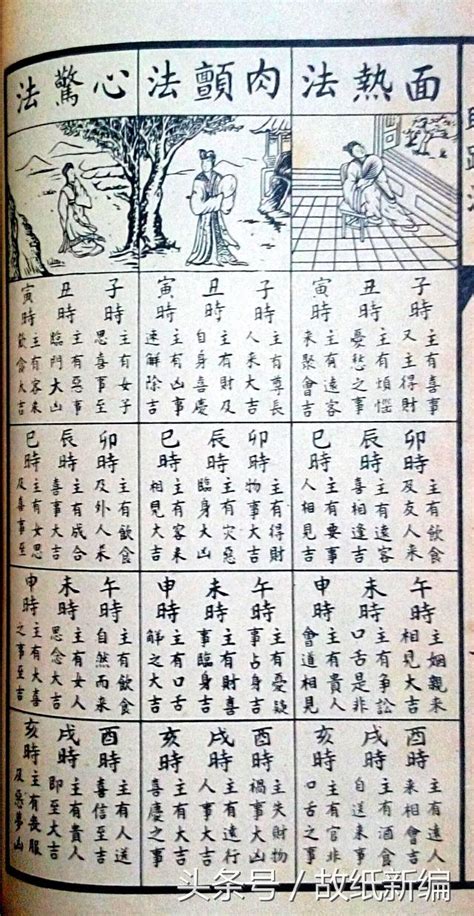 面熱法
子時
主有喜事
又主得財
丑時
主有煩惱
憂愁之事
寅時
主有遠客
來聚會吉
卯時
主有飲食
及友人來
辰時
主有遠客
喜相逢吉
巳時
主有要事
人相見吉
午時
主姻親來
相見大吉
未時
主有爭訟
口舌是非
申時
主有貴人
會道相見
酉時
主有遠人
來相會吉
戌時
主有酒食
自送來事
亥時
主有官非
口舌之事
肉顫法
子時
主有尊長
人來大吉
丑時
主有財及
自身喜慶
寅時
主有凶事
速解除吉
卯時
主有得財
物事大吉
辰時
主有災惡
臨身大凶
巳時
主有客來
相見大吉
午時
主有憂疑
事占身吉
未時
主有財喜
事臨身吉
申時
主有口舌
解之大吉
酉時
主失財物
禍事大吉
戌時
主有遠行
人事大吉
亥時
主有大吉
喜慶之事
心驚法
子時
主有女子
思喜事至
丑時
主有惡事
臨門大凶
寅時
主有客來
飲食大吉
卯時
主有飲食
及外人來
辰時
主有成合
喜事大吉
巳時
主有女思
及喜事至
午時
主有飲食
自然而來
未時
主有女人
思念大吉
申時
主有大喜
之事至吉
酉時
主有人送
喜信至吉
戌時
主有貴人
即至大吉
亥時
主有喪服
及惡夢凶
头条号/故纸新编